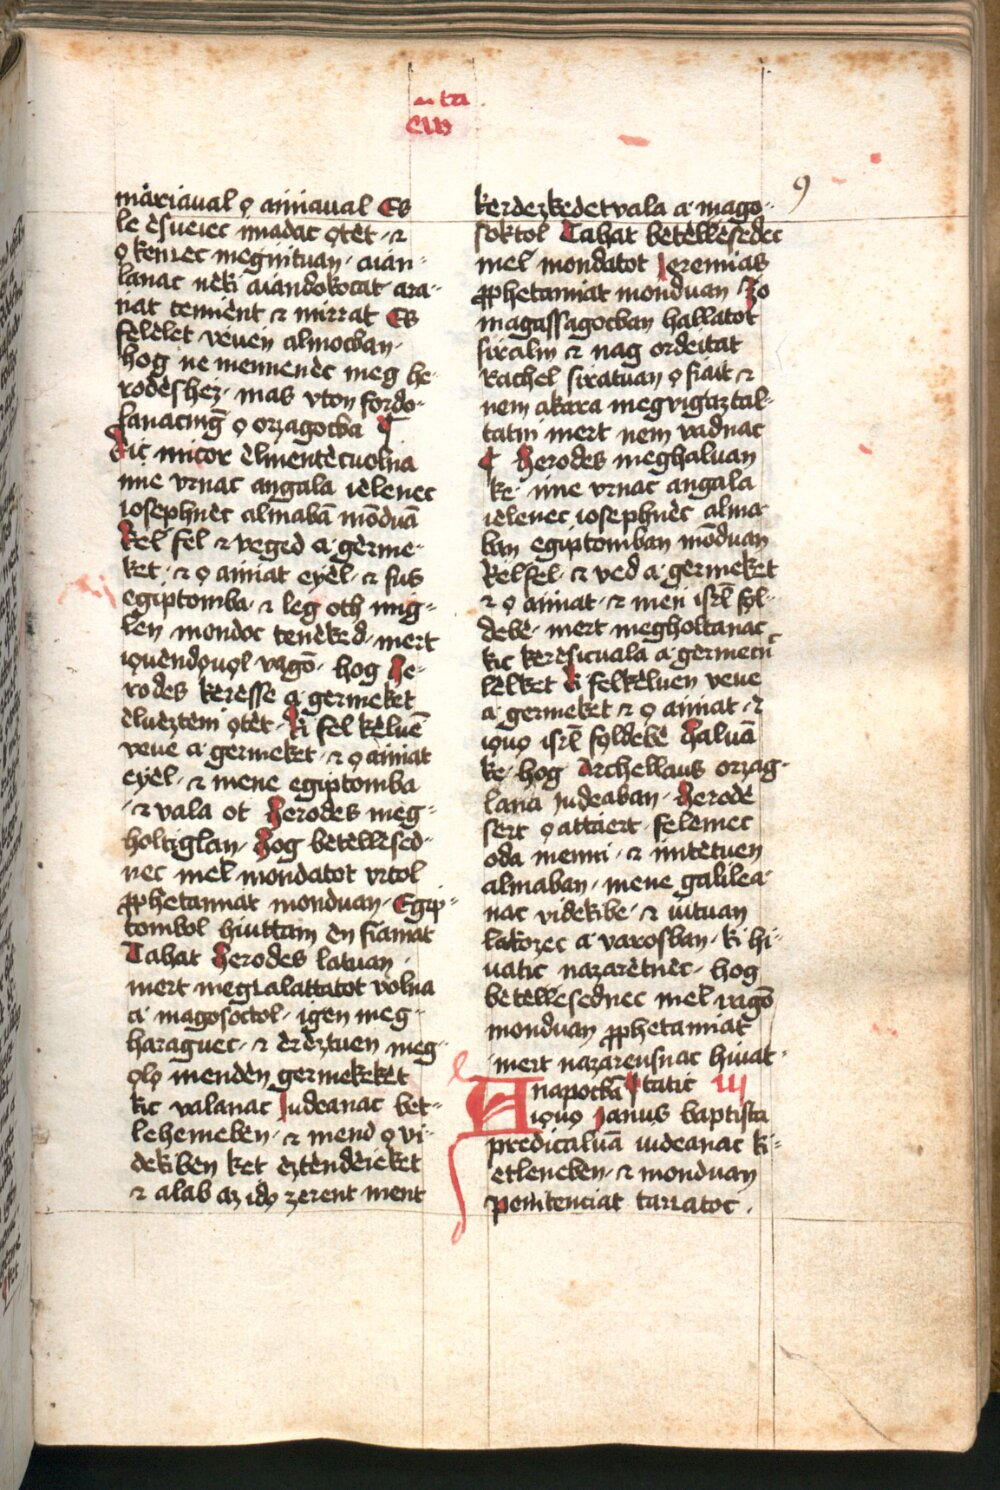 ta
eus
9
mariaual ọ ańńaual Es
le ėsueiec imadac ọtėt · ⁊
ọ kenćec megńituan · aian-
lanac nėki aiandokocat · ara-
ńat temient ⁊ mirrat Es
fėlėlet veuen almocban ·
hog ne mennenėc meg he-
rodėshez · mas vton fordo-
lanacmḡ ọ orzagocba ¶
Kic micor ėlmentėcuolna
ime vrnac angala iėlenec
iosephnėc almabā mōduā
kėl fėl ⁊ veged a · gėrme-
ket · ⁊ ọ ańńat eyėl · ⁊ fus
egiptomba · ⁊ leg oth mig-
len mondoc tenėked · mert
iọuendọuọl vagō · hog He-
rodes keresse a germeket
ėlueztėni ọtėt · Ki fel kėluē
veue a · germeket · ⁊ ọ ańńat
eyėl · ⁊ mene egiptomba
· ⁊ vala ot Herodes meg-
holtiglan · Hog betėllėsed-
nec mėl mondatot vrtol
ꝓphetamiat monduan · Egip-
tombol hiuttam en fiamat
Tahat Herodes latuan ·
mert megėalattatot volna
a · magosoctol · igen meg-
haraguec · ⁊ ėrėztuen meg-
ọlọ mendėn germekekėt
kic valanac Iudeanac bet-
lehemeben · ⁊ mend ọ vi-
dekiben ket ėztėndėieket
⁊ alab az idọ zerent ment
kerdezkedetvala a · mago-
soktol Tahat betėllėsedėc
mėl mondatot Ieremias
ꝓphetamiat monduan Zo
magassagocban hallatot
siralm ⁊ nag ordeitat
Rachel siratuan ọ fiait ⁊
nem akara megvigaztal-
tatni mert nem vadnac
¶ Herodes meghaluan
ke · ime vrnac angala
iėlenec iosephnėc alma-
ban egiptomban mōduan
Kėlfel · ⁊ ved a · germeket
⁊ ọ ańńat · ⁊ meń isrl̄ fọl-
debe · mert megholtanac
kic kėrėsicuala a · germecń
lėlket Ki felkėluen veue
a · germeket ⁊ ọ ańńat · ⁊
iọuọ isrl̄ fọldebė Haluā
ke · hog Archellaus orzag-
lana iudeaban · Herodė
sėrt ọ attaėrt · felėmec
oda menni · ⁊ intėtuen
almaban · mene galilea-
nac videkibe · ⁊ iutuan
lakozec a · varosban · ki hi-
uatic nazarėtnėc · hog
betėllesednec mėl vagō
monduan ꝓphetamiat
mert nazareusnac hiuat-
Anapocbā ¶ tatic III
iọuọ Ianus baptista
predicaluā iudeanac ki-
etleneben · ⁊ monduan
penitenciat tarćatoc ·